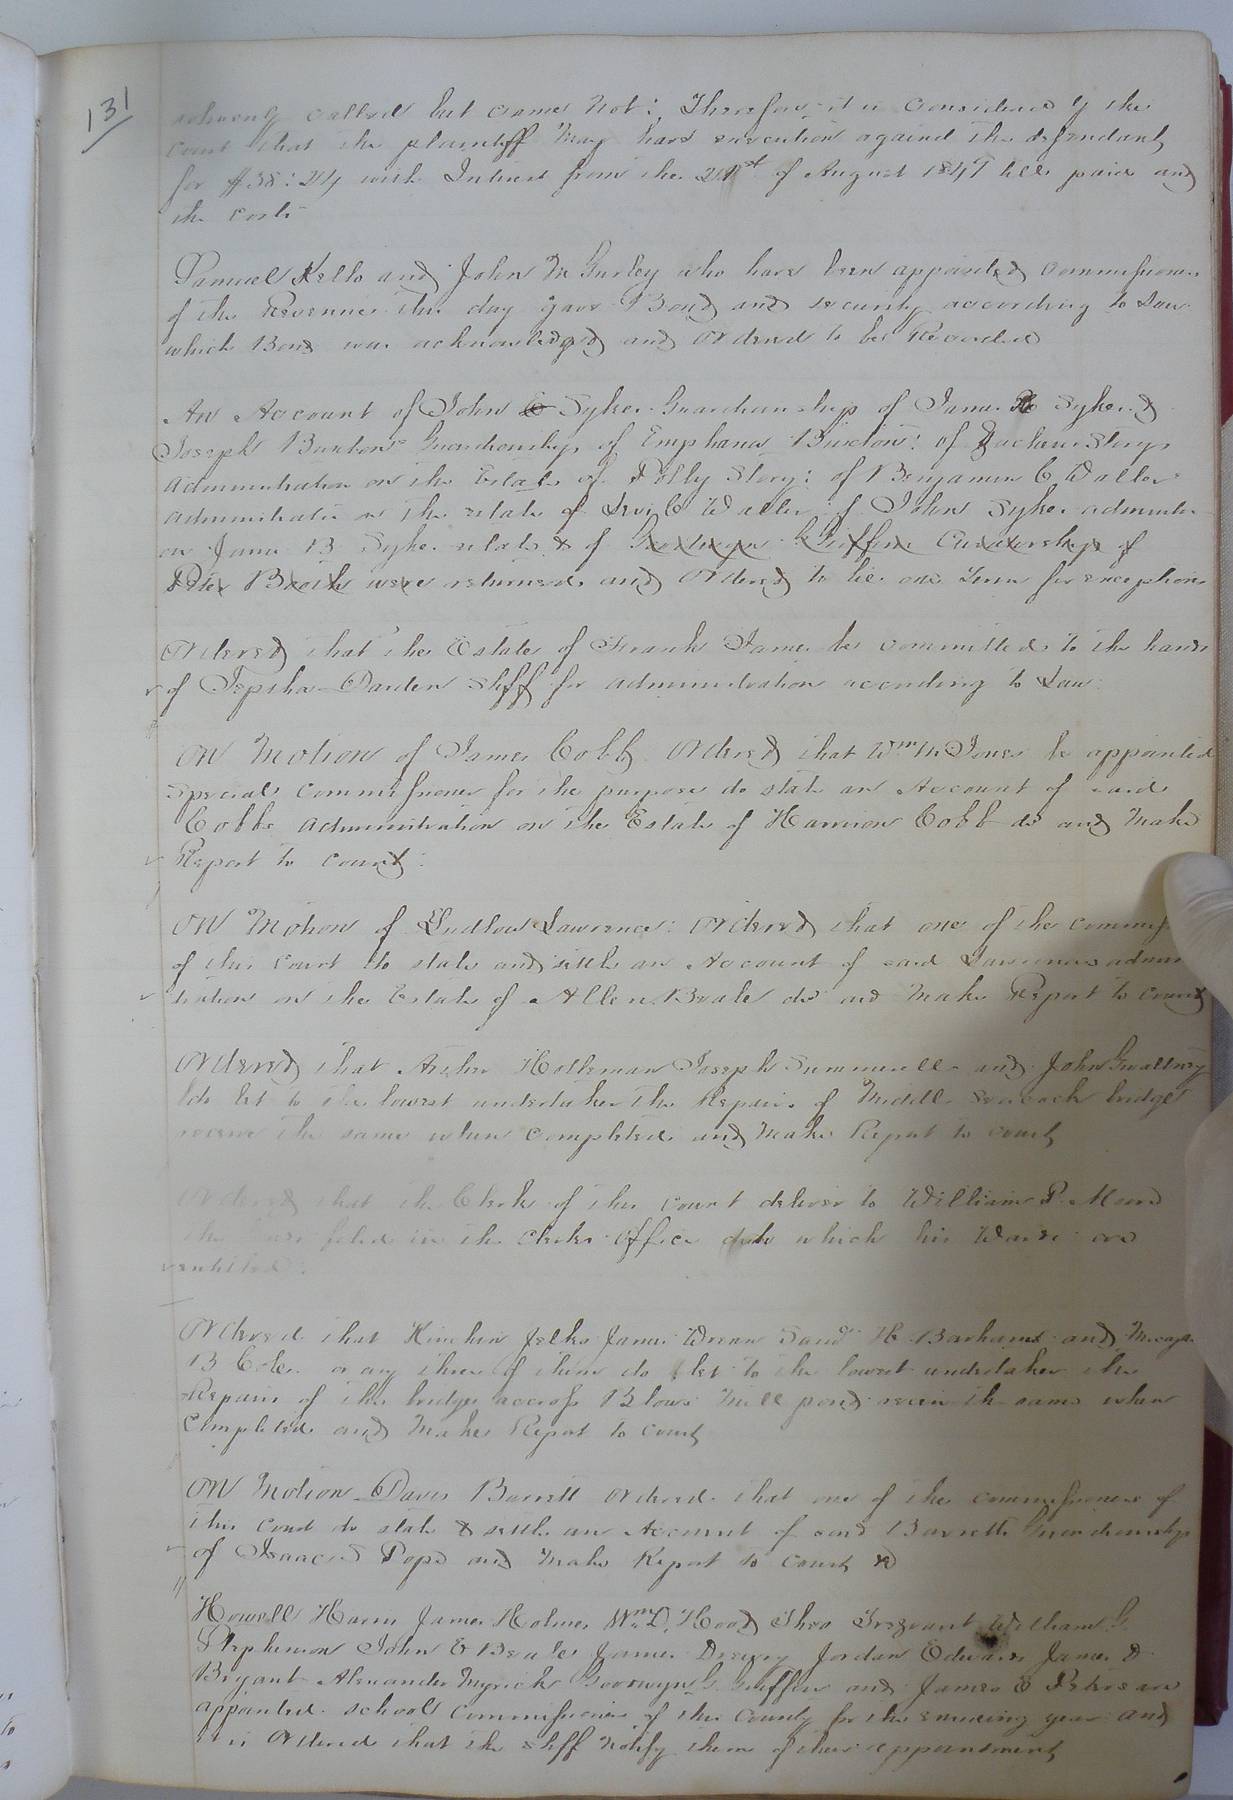 131
solemnly called but came not: Therefore it is considered by the
court that the plaintiff may have execution against the defendant
for $38:24 with Interest from the of August 1847 till paid and
the costs
Samuel Kello and John M Gurley who have been appointed commissioners
of the Revenue this day gave Bond and security according to Law
which Bond was acknowledged and ordered to be Recorded
An Account of John Sykes Guardianship of James Sykes &
Joseph Buxtons Guardianship of Emphana Buxton: of Story
administration on the Estate of Polly Story: of Benjamin C Waller
administratin on the estate of Levi C Waller of John Sykes administn
on James B Sykes estate & of Griffins Curatorship of
were returned and ordered to lie one Term for exceptions
Ordered that the Estate of Frank James be committed to the hands
of Jeptha Darden Shff for administration according to Law
On Motion of James Cobb Ordered that Wm M Jones be appointed
special commissioner for the purpose do state an Account of said
Cobbs Administration on the Estate of Harrison Cobb do and Make
Report to court
On Motion of Ludlow Lawrence: Ordered that one of the commiss
of this court do state and settle an Account of said Lawrences admin
tration on the Estate of Allen Beale do and Make Report to court
Ordered that Holleman Joseph Summerell and John Gwaltney
do let to the lowest undertaker the Repairs of Middle Seacock bridge
receive the same when completed and Make Report to court
Ordered that the Clerk of this court deliver to William P. Moore
the filed in the clerks office which his are
entitled:
Ordered that Hinchen Jelks James Wrenn H Barham and
B Cole or any three of them do let to the lowest undertaker the
Repairs of the bridge across Blows Mill pond receive the same when
completed and Make Report to court
On Motion Davis Barrett ordered that one of the commissioners of
this court do state & settle an Account of said Barretts Guardianship
of Pope and Make Report to court
Howell Harris James Holmes Wm D. Hood Theo Trezvant William G.
Stephenson John E Beale James Drewry Jordan Edwards James D
Bryant Alexander Myrick G. Griffin and James E Peters are
appointed school commissioners of this County for the ensuing year and
it is Ordered that the shff Notify them of their appointment